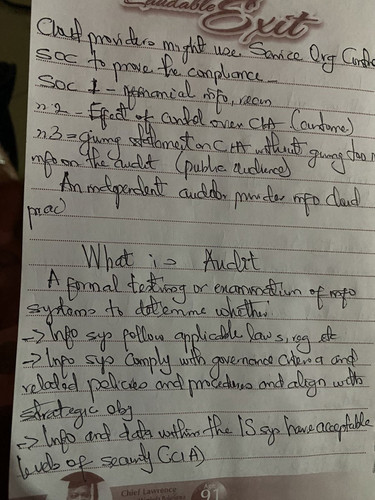 Laudable Exit
Cloud providers might use Service Org Control
SOC to prove the compliance -
SOC 1 - financial info,
" 2 - Effect of control over CIA (customer)
" 3 = giving on CIA without giving too m
info on the audit (public audience)
An independent auditor provides info cloud
prac)
What is Audit
A formal testing or examination of info
systems to determine whether
-> Info sys follow applicable laws, reg etc
-> Info sys comply with governance criteria and
related policies and procedures and align with
strategic obj
-> Info and data within the IS sys have acceptable
levels of security (CIA)
Chief Lawrence
91